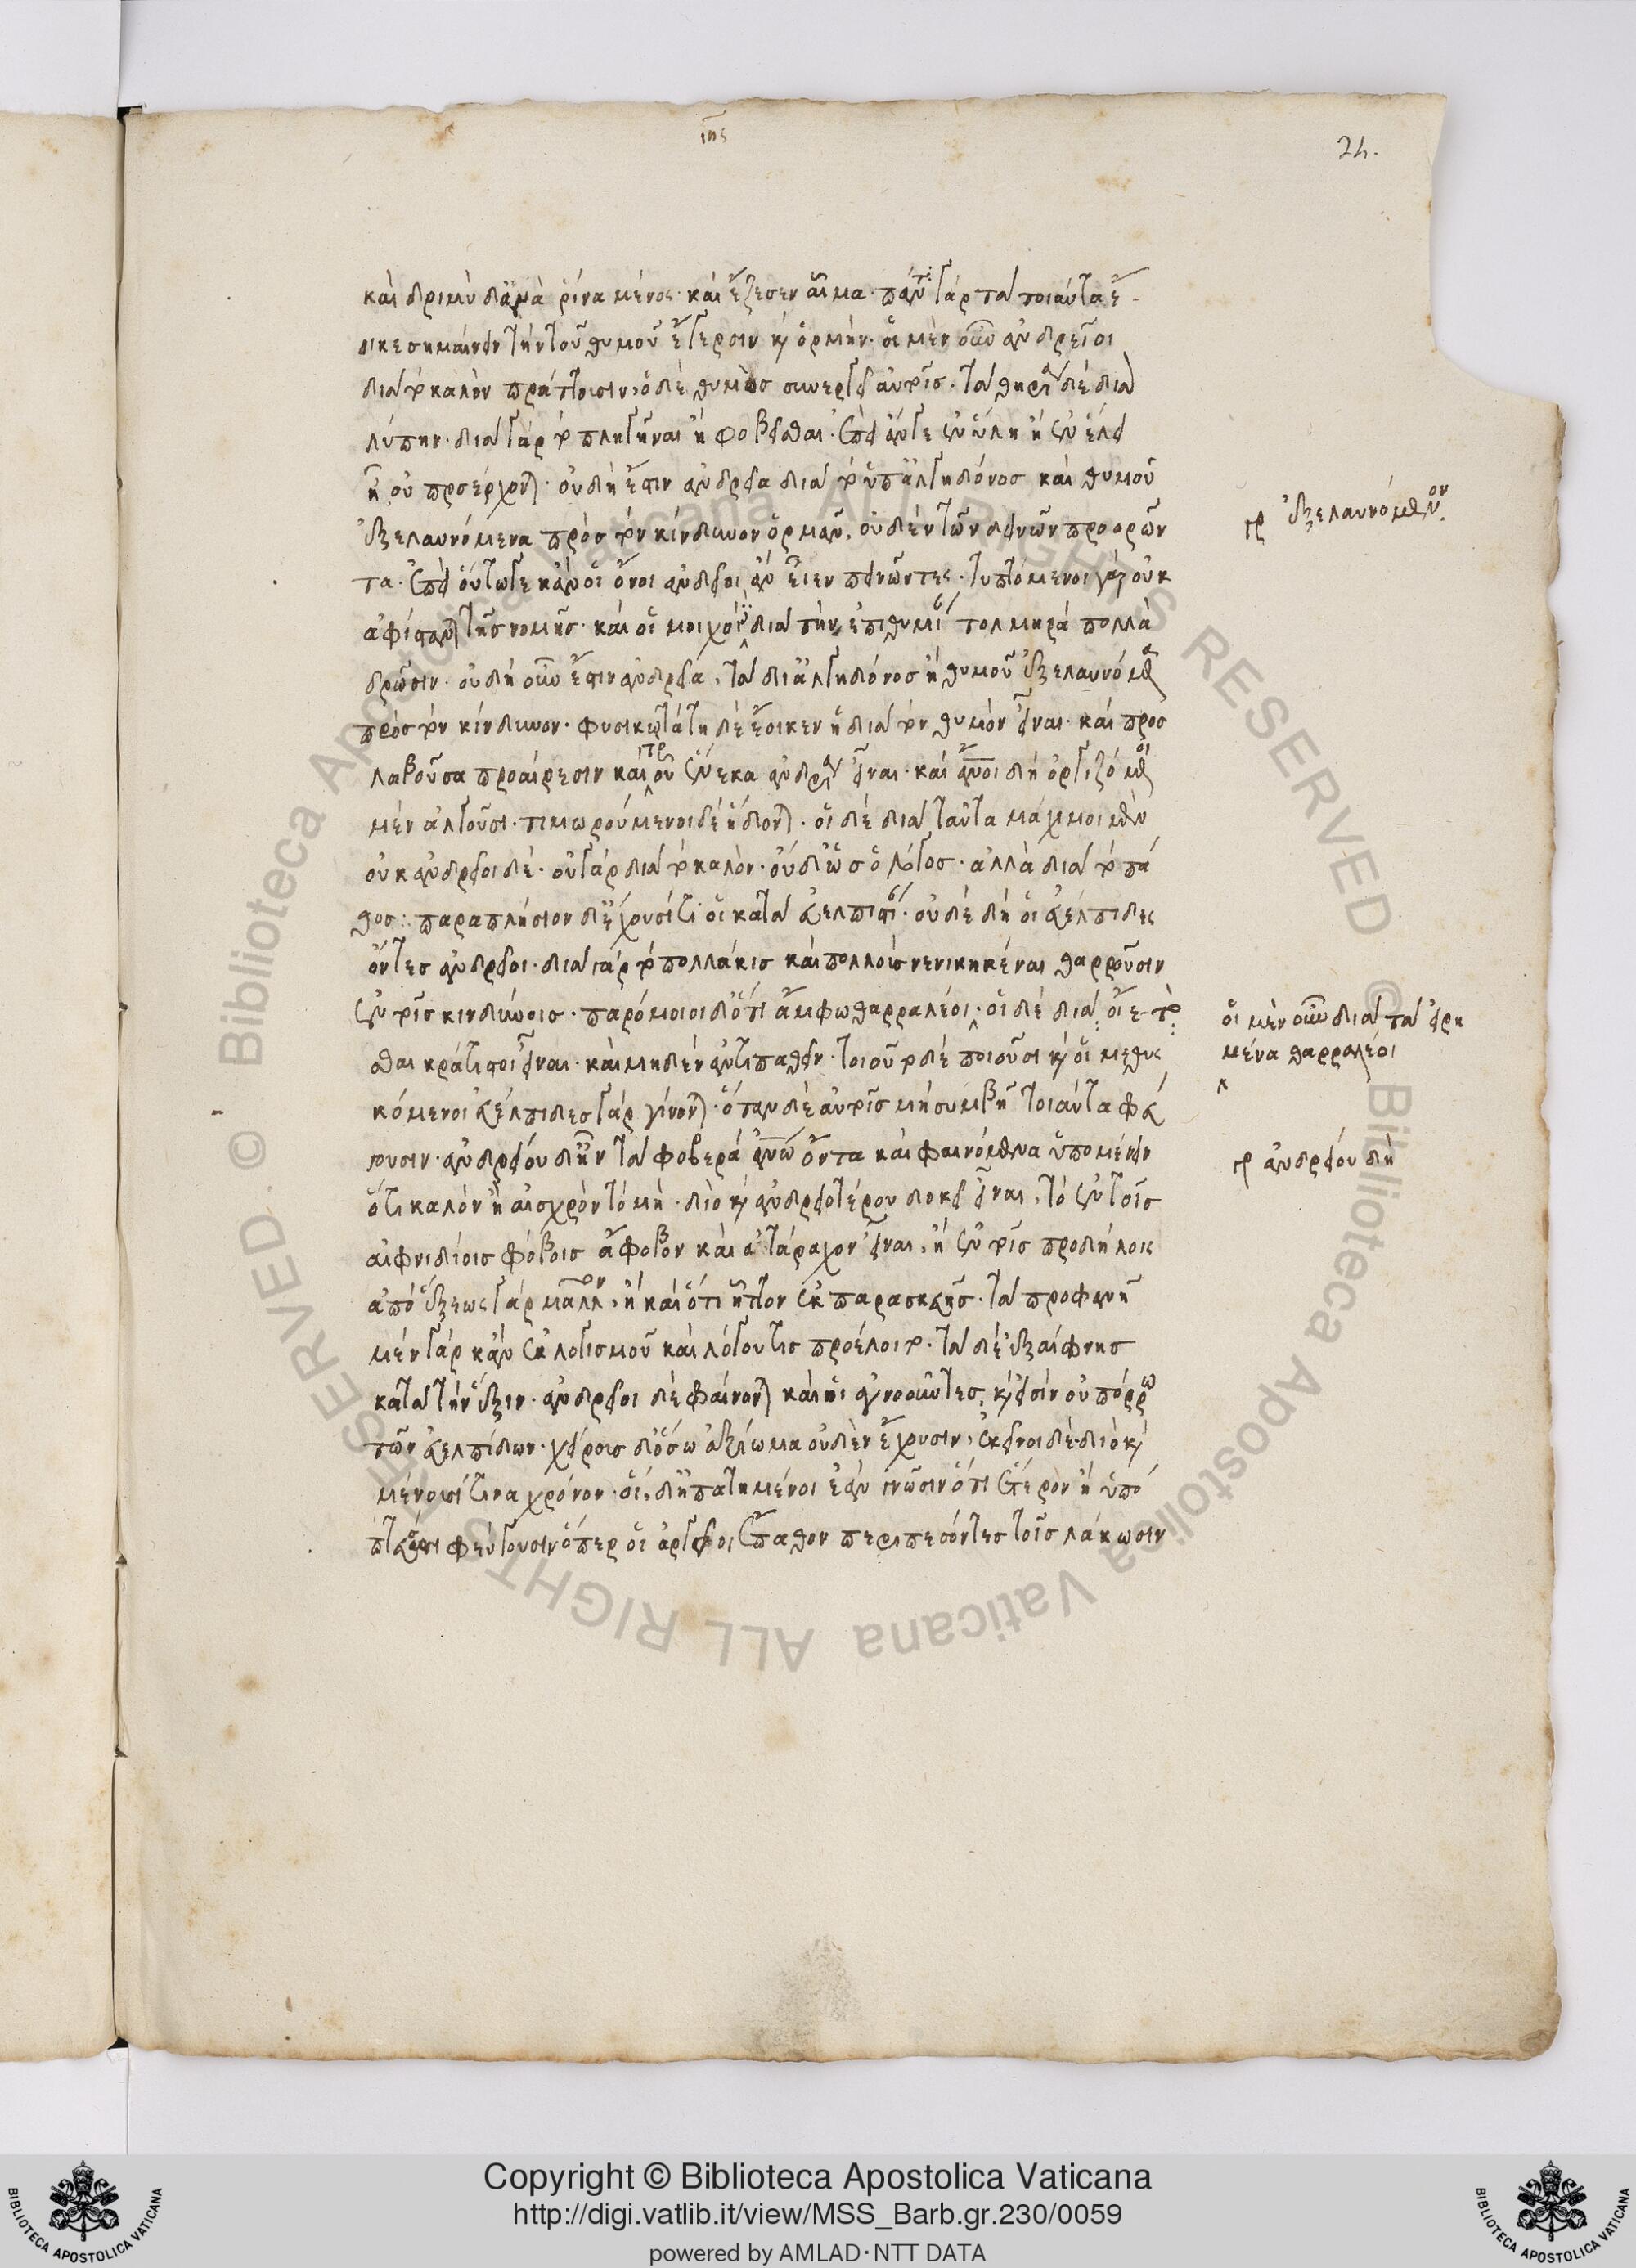 ιης
24.
καὶ δριμὺ δ' ἀνὰ ῥίνα μένος· καὶ ἔζεσεν αἷμα· πάντα γὰρ τὰ τοιαῦτα ἔ-
οικε σημαίνειν τὴν τοῦ θυμοῦ ἔγερσιν καὶ ὁρμήν· οἱ μὲν οὖν ἀνδρεῖοι
διὰ τὸ καλὸν πράττουσιν, ὁ δὲ θυμὸς συνεργεῖ αὐτοῖς. τὰ θηρία δὲ διὰ
λύπην· διὰ γὰρ τὸ πληγῆναι ἢ φοβεῖσθαι· ἐπεὶ ἐάν γε ἐν ὕλη ἢ ἐν ἕλει
ἦ οὐ προσέρχονται· οὐ δή ἐστιν ἀνδρεία διὰ τὸ ὑπ' ἀλγηδόνος καὶ θυμοῦ
ἐξελαυνόμενα πρὸς τὸν κίνδυνον ὁρμᾶν, οὐδὲν τῶν δεινῶν προορῶν
τα· ἐπεὶ οὕτω γε κἂν οἱ ὄνοι ἀνδρεῖοι ἂν εἶεν πεινῶντες· τυπτόμενοι γὰρ οὐκ
ἀφίστανται τῆς νομῆς· καὶ οἱ μοιχοὶ δὲ διὰ τὴν ἐπιθυμίαν τολμηρὰ πολλὰ
δρῶσιν· οὐ δή οὖν ἐστιν ἀνδρεία, τὰ δι' ἀλγηδόνος ἢ θυμοῦ ἐξελαυνόμενα
πρὸς τὸν κίνδυνον· φυσικωτάτη δὲ ἔοικεν ἡ διὰ τὸν θυμὸν εἶναι· καὶ προσ
λαβοῦσα προαίρεσιν καὶ τὸ οὗ ἕνεκα ἀνδρεία εἶναι· καὶ ἄνθρωποι δὴ ὀργιζόμενοι
μὲν ἀλγοῦσι· τιμωρούμενοι δὲ ἥδονται· οἱ δὲ διὰ ταῦτα μάχιμοι μὲν
οὐκ ἀνδρεῖοι δέ· οὐ γὰρ διὰ τὸ καλὸν· οὐδ' ὡς ὁ λόγος· ἀλλὰ διὰ τὸ πά
θος: παραπλήσιον δ' ἔχουσί τι οἱ κατὰ εὐελπιστίαν· οὐδὲ δὴ οἱ εὐέλπιδες
ὄντες ἀνδρεῖοι· διὰ γὰρ τὸ πολλάκις καὶ πολλοὺς νενικηκέναι θαρροῦσιν
ἐν τοῖς κινδύνοις· παρόμοιοι δ' ὅτι ἄμφω θαρραλέοι· οἱ δὲ διὰ τὸ οἴε-
σθαι κράτιστοι εἶναι· καὶ μηδὲν ἀντιπαθεῖν· τοιοῦτο δὲ ποιοῦσι καὶ οἱ μεθυς
κόμενοι εὐέλπιδες γὰρ γίνονται· ὅταν δὲ αὐτοῖς μὴ συμβῆ τοιαῦτα φεύ
γουσιν· ἀνδρείου δ' ἦν τὰ φοβερὰ ἀνθρώπω ὄντα καὶ φαινόμενα ὑπομένειν
ὅτι καλὸν ἢ αἰσχρὸν τὸ μή· διὸ καὶ ἀνδρειοτέρου δοκεῖ εἶναι, τὸ ἐν τοῖς
αἰφνιδίοις φόβοις ἄφοβον καὶ ἀτάραχον εἶναι, ἢ ἐν τοῖς προδήλοις
ἀπὸ ἕξεως γὰρ μᾶλλον, ἢ καὶ ὅτι ἧττον ἐκ παρασκευῆς· τὰ προφανῆ
μὲν γὰρ κἂν ἐκ λογισμοῦ καὶ λόγου τις προέλοιτο· τὰ δὲ ἐξαίφνης
κατὰ τὴν ἕξιν· ἀνδρεῖοι δὲ φαίνονται καὶ οἱ ἀγνοοῦντες, καὶ εἰσὶν οὐ πόρρω
τῶν εὐελπίδων· χείρους δ' ὅσω ἀξίωμα οὐδὲν ἔχουσιν, ἐκεῖνοι δέ· διὸ καὶ
μένουσί τινα χρόνον· οἱ δ' ἠπατημένοι ἐὰν γνῶσιν ὅτι ἕτερον ἢ ὑπό
πτευσαν φεύγουσιν ὅπερ οἱ ἀργεῖοι ἔπαθον περιπεσόντες τοῖς λάκωσιν
γρ ἐξελαυνόμενον
οἱ μὲν οὖν διὰ τὰ εἰρη
μένα θαρραλέοι
γρ ἀνδρείου δὴ
Copyright © Biblioteca Apostolica Vaticana
http://digi.vatlib.it/view/MSS_Barb.gr.230/0059
powered by AMLAD·NTT DATA
BIBLIOTECA APOSTOLICA VATICANA
BIBLIOTECA APOSTOLICA VATICANA
© Biblioteca Apostolica Vaticana ALL RIGHTS RESERVED © Biblioteca Apostolica Vaticana ALL RIGHTS RESERVED